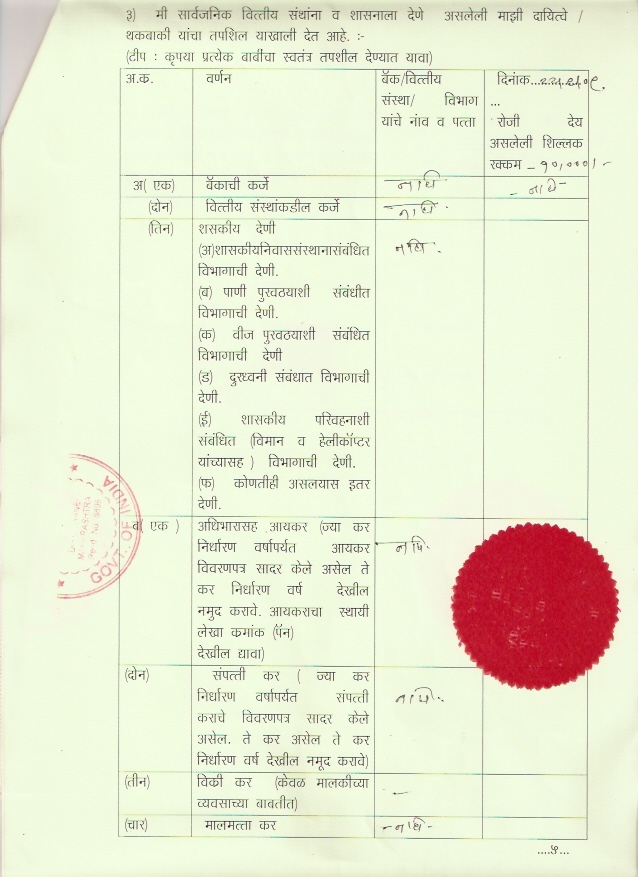 ३) मी सार्वजनिक वित्तीय संथांना व शासनाला देणे असलेली माझी दायित्वे /
थकबाकी यांचा तपशिल याखाली देत आहे. :-
(टीप : कृपया प्रत्येक बाबींचा स्वतंत्र तपशील देण्यात यावा)
अ.क.
वर्णन
बॅक/वित्तीय
संस्था/ विभाग
यांचे नांव व पत्ता
दिनांक...
...
रोजी देय
असलेली शिल्लक
रक्कम – १०,०००/-
अ( एक)
बॅकाची कर्जे
नाही
- नाही -
(दोन)
वित्तीय संस्थांकडील कर्जे
नाही
(तिन)
शसकीय देणी
नाही.
(अ)शासकीयनिवाससंस्थानासंबंधित
विभागाची देणी.
(ब) पाणी पुरवठयाशी संबंधीत
विभागाची देणी.
(क) वीज पुरवठयाशी संबंधित
विभागाची देणी
(ड) दुरध्वनी संबंधात विभागाची
देणी.
(ई) शासकीय परिवहनाशी
संबंधित (विमान व हेलीकॉप्टर
यांच्यासह ) विभागाची देणी.
(फ) कोणतीही असलयास इतर
देणी.
ब( एक )
अधिभारासह आयकर (ज्या कर
निर्धारण वर्षापर्यत आयकर
विवरणपत्र सादर केले असेल ते
कर निर्धारण वर्ष देखील
नमुद करावे. आयकराचा स्थायी
लेखा कमांक (पॅन)
देखील द्यावा)
नाही.
(दोन)
संपत्ती कर ( ज्या कर
निर्धारण वर्षापर्यत संपत्ती
कराचे विवरणपत्र सादर केले
असेल. ते कर असेल ते कर
निर्धारण वर्ष देखील नमुद करावे)
नाही.
(तीन)
विकी कर (केवळ मालकीच्या
व्यवसाच्या बाबतीत)
–
(चार)
मालमत्ता कर
- नाही -
GOVT. OF INDIA
....५...